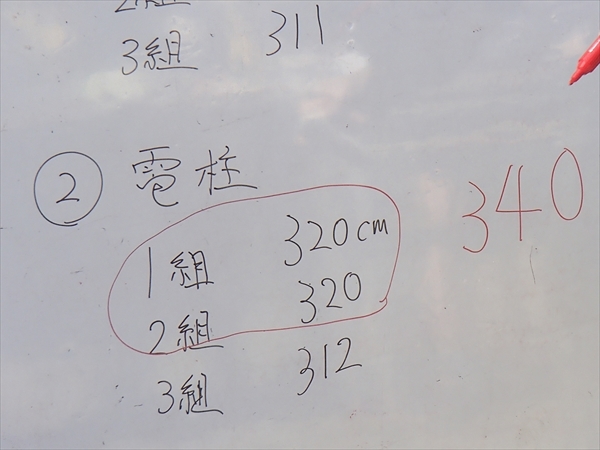 3組 311
② 電柱
340
1組 320cm
2組 320
3組 312